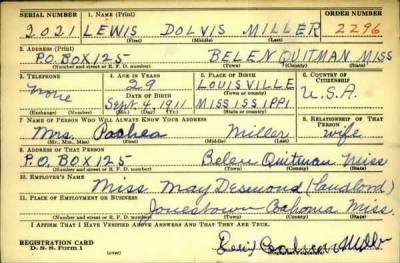 SERIAL NUMBER 1. NAME (Print) ORDER NUMBER
2021 LEWIS DOLVIS MILLER 2296
(First) (Middle) (Last)
2. ADDRESS (Print)
P.O. BOX 125 BELEN QUITMAN MISS
(Number and street or R. F. D. number) (Town) (County) (State)
3. TELEPHONE 4. AGE IN YEARS 5. PLACE OF BIRTH 6. COUNTRY OF CITIZENSHIP
None 29 LOUISVILLE U.S.A.
DATE OF BIRTH (Town or county)
Sept. 4, 1911 MISSISSIPPI
(Exchange) (Number) (Mo.) (Day) (Yr.) (State or country)
7. NAME OF PERSON WHO WILL ALWAYS KNOW YOUR ADDRESS 8. RELATIONSHIP OF THAT PERSON
Mrs. Miller wife
(Mr., Mrs., Miss) (First) (Middle) (Last)
9. ADDRESS OF THAT PERSON
P.O. BOX 125 Belen Quitman Miss
(Number and street or R. F. D. number) (Town) (County) (State)
10. EMPLOYER'S NAME
Miss May Desmond (Landlord)
11. PLACE OF EMPLOYMENT OR BUSINESS
Jonestown Coahoma Miss.
(Number and street or R. F. D. number) (Town) (County) (State)
I AFFIRM THAT I HAVE VERIFIED ABOVE ANSWERS AND THAT THEY ARE TRUE.
REGISTRATION CARD
D. S. S. Form 1 (over) (Registrant's signature)